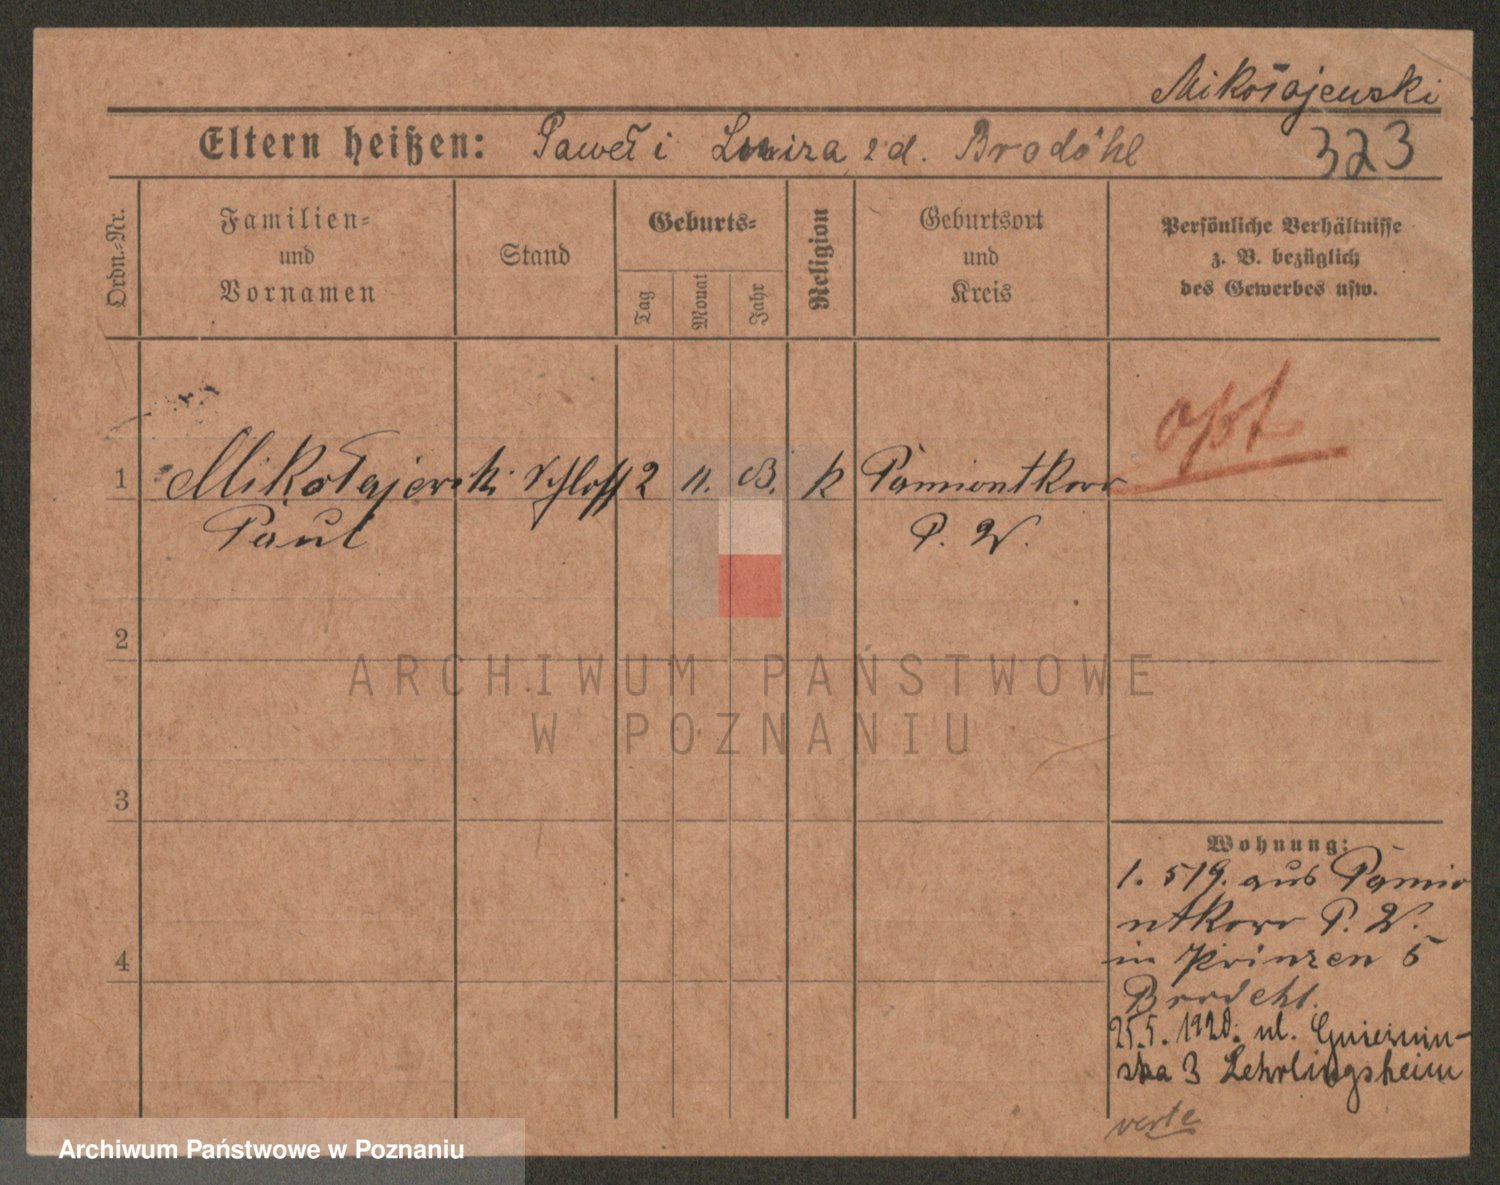 Mikołajewski
323
Eltern heißen: Paweł i Luiza zd. Brodöhl
Ordn.-Nr.
Familien-
und
Vornamen
Stand
Geburts-
Tag
Monat
Jahr
Religion
Geburtsort
und
Kreis
Persönliche Verhältnisse
z. B. bezüglich
des Gewerbes usw.
opt
1 Mikołajewski Schloss 2 11. k Pamiontkowo
Paul P. W.
2
3
4
ARCHIWUM PAŃSTWOWE
W POZNANIU
Wohnung:
1. 5 19. aus Pamio
ntkowo P. W.
in Prinzen 5
Brodehl.
25.5.1920. ul. Gnieźnin-
ska 3 Lehrlingsheim
verte
Archiwum Państwowe w Poznaniu